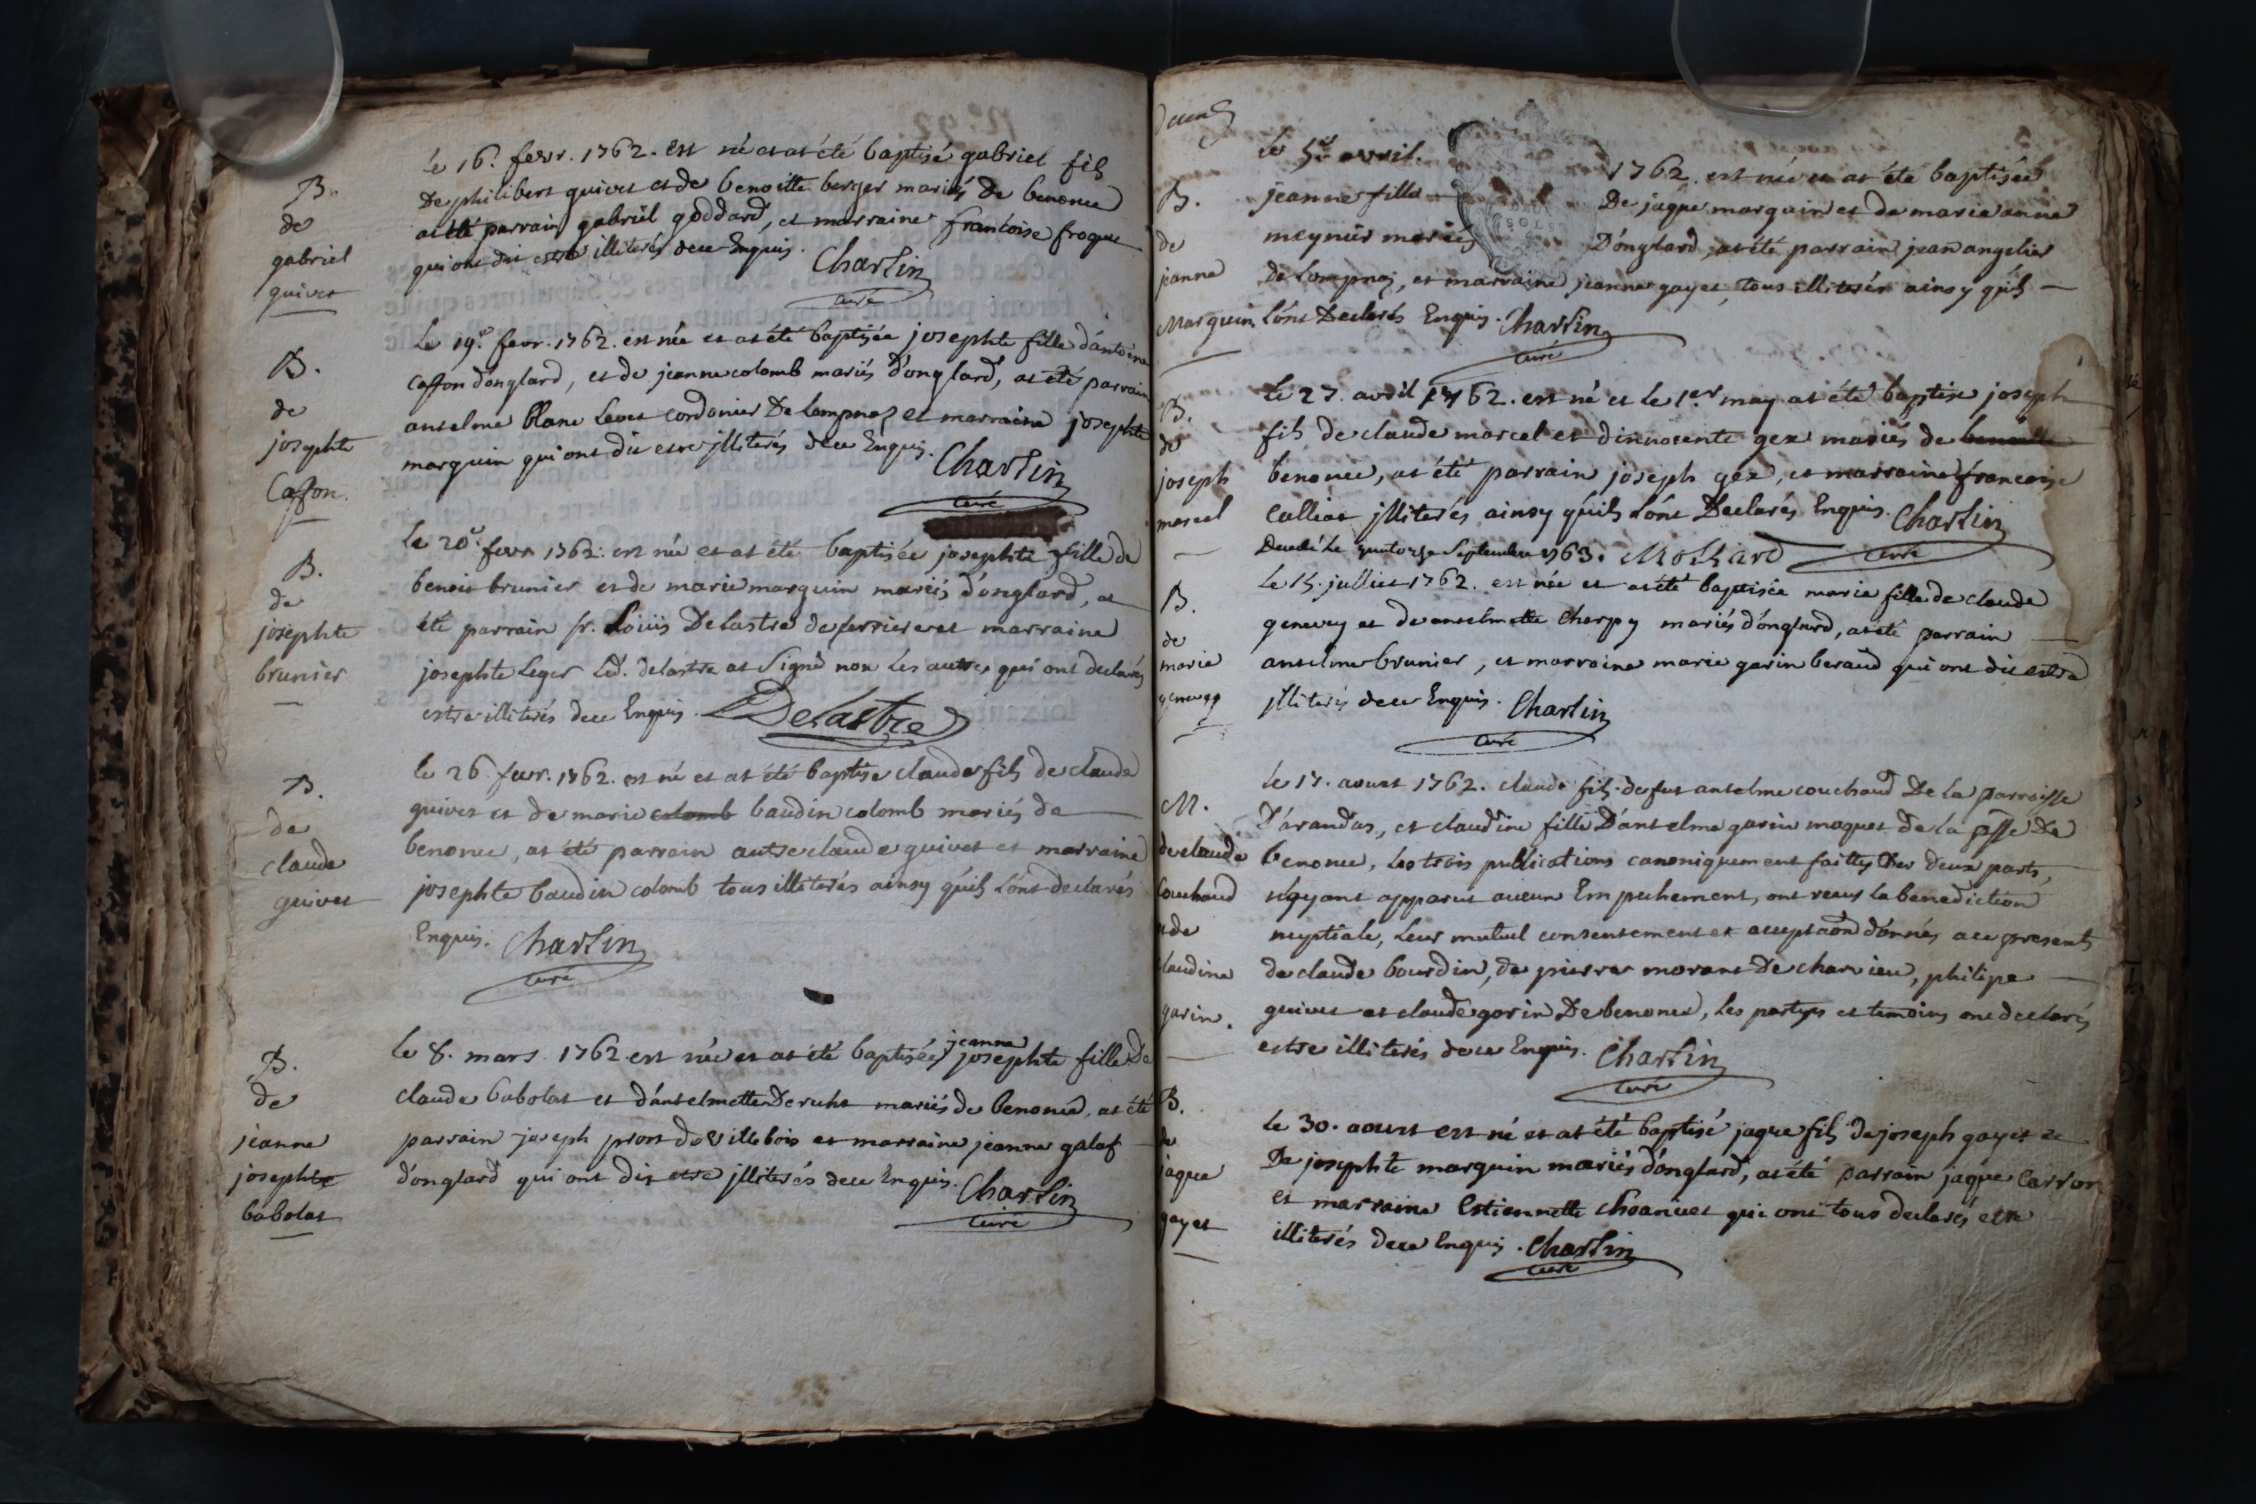 B.
de
gabriel
guivet
le 16.e fevr. 1762. est né et at été baptisé gabriel fils
De philibert guivet et de benoitte berger mariés De benonce
at été parrain gabriel goddard, et marraine francoise froque
qui ont dit estre illiterés de ce Enquis.
Charlin
curé
B.
de
josephte
Caffon.
Le 19.e fevr. 1762. est née et at été baptisée josephte fille d'antoine
caffon d'onglard, et de jeanne colomb mariés d'onglard, at été parrain
anselme blanc levet cordonier De lompnaz et marraine josephte
marguin qui ont dit estre jlliterés de ce Enquis.
Charlin
curé
B.
de
josephte
brunier
le 20.e fevr 1762. est née et at été baptisée josephte fille de
benoit brunier et de marie marguin mariés d'onglard, at
été parrain sr. Loüis Delastre de ferriere et marraine
josephte Leger Led. delastre at Signé non Les autres qui ont declarés
estre illiterés de ce Enquis.
Delastre
B.
de
claude
guivet
le 26 fevr. 1762. est né et at été baptise claude fils de claude
guivet et de marie colomb baudin colomb mariés de
benonce, at été parrain autre claude guivet et marraine
josephte baudin colomb tous illiterés ainsy qu'ils L'ont declarés
Enquis.
Charlin
curé
B.
de
jeanne
josephte
babolat
jeanne
le 8. mars 1762 est née et at été baptisée josephte fille De
claude babolat et d'antelmette Deruht mariés de benonce, at été
parrain joseph prost de Villebois et marraine jeanne galaf
d'onglard qui ont dit estre jlliterés de ce Enquis.
Charlin
curé
B.
de
jeanne
Marguin
le 5.e avril. 1762. est née et at été baptisée
jeanne fille De jaque marguin et de marie anne
meynier mariés D'onglard, at été parrain jean angelier
de Lompnaz, et marraine jeanne gayet, tous illiterés ainsy qu'ils
l'ont Declarés Enquis. Charlin
curé
B.
de
joseph
marcel
le 27. avril 1762. est né et le 1.er may at été baptise joseph
fils de claude marcel et d'innocente gex mariés de
benonce, at été parrain joseph gex, et marraine francoise
Calliat jlliterés ainsy qu'ils L'ont Declarés Enquis. Charlin
curé
Decedé Le quatorze Septembre 1763. Mothard
B.
de
marie
genevey
Le 15. julliet 1762. est née et at été baptisée marie fille de claude
genevey et de anselmette Charpy mariés d'onglard, at été parrain
anselme brunier, et marraine marie garin beraud qui ont dit estre
jlliterés de ce Enquis. Charlin
curé
M.
de claude
Couchoud
et de
claudine
garin.
le 17. aoust 1762. claude fils de fut anselme couchoud De La parroisse
D'arandas, et claudine fille D'antelme garin maquet de La psse De
benonce, Les trois publications canoniquement faittes Des deux parts,
n'ayant apparut aucun Empechement, ont receus la benediction
nuptiale, Leur mutuel consentement et acceptaõn donnés a ce presents
de claude bourdin, de pierre morant De charvieu, philipe
guivet et claude garin De benonce, Les partyes et temoins ont declarés
estre illiterés de ce Enquis. Charlin
curé
B.
de
jaque
gayet
le 30. aoust est né et at été baptisé jaque fils de joseph gayet et
De josephte marguin mariés d'onglard, at été parrain jaque Carron
et marraine Estiennette choanvet qui ont tous declarés etre
illiterés de ce Enquis. Charlin
curé